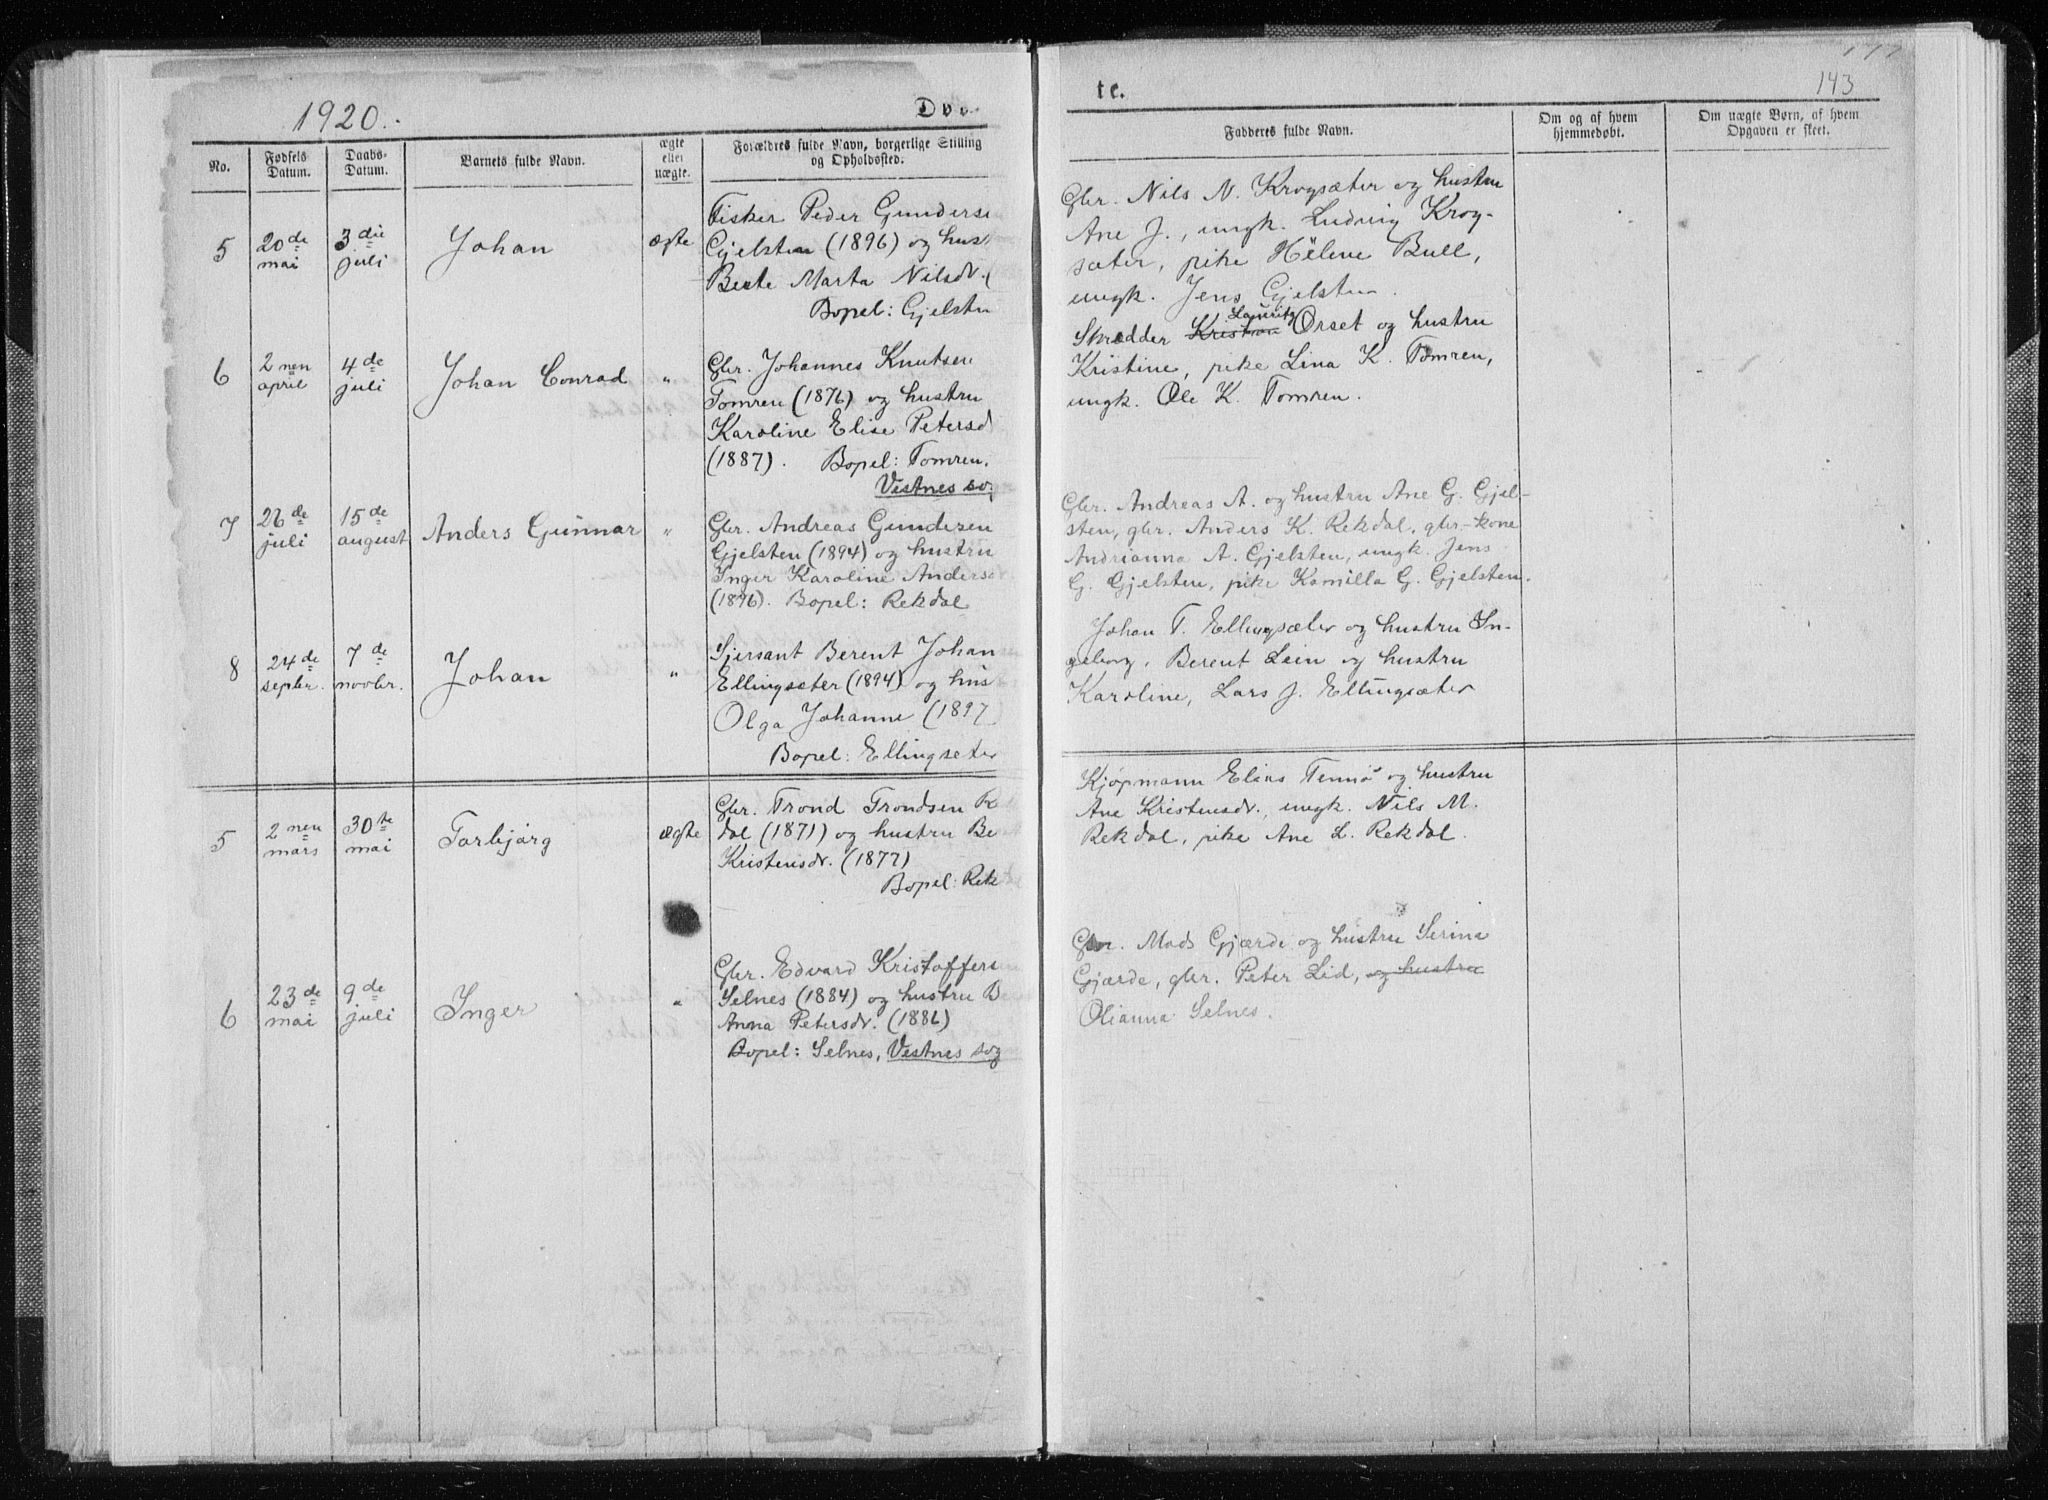 1920.
Døb
te.
143
No.
Fødsels Datum.
Daabs-Datum.
Barnets fulde Navn.
ægte eller uægte.
Forældres fulde Navn, borgerlige Stilling og Opholdssted.
Fadderes fulde Navn.
Om og af hvem hjemmedøbt.
Om uægte Børn, af hvem Opgaven er skeet.
5
20de mai
3die juli
Johan
ægte
Fisker Peder Gunderse
Gjelsten (1896) og hust
Beate Marta Nilsdr. (
Bopel: Gjelsten
Gbr. Nils N. Krogsæter og hustru
Ane J., ungk. Ludvig Krog-
sæter, pike Hélene Bull,
ungk. Jens Gjelsten.
6
2nen april
4de juli
Johan Conrad
"
Gbr. Johannes Knutsen
Tomren (1876) og hustru
Karoline Elise Petersd
(1887). Bopel: Tomren.
Vestnes so
Lauritz
Skrædder Kristian Orset og hustru
Kristine, pike Lina K. Tomren,
ungk. Ole K. Tomren.
7
26de juli
15de august
Anders Gunnar
"
Gbr. Andreas Gundersen
Gjelsten (1894) og hustru
Inger Karoline Anders
(1896). Bopel: Rekdal
Gbr. Andreas A. og hustru Ane G. Gjel-
sten, gbr. Anders K. Rekdal, gbr-kone
Andrianna A. Gjelsten, ungk. Jens
G. Gjelsten, pike Kamilla G. Gjelsten.
8
24de septbr.
7de novbr.
Johan
"
Sjersant Berent Johan
Ellingsæter (1894) og hus
Olga Johanne (1897
Bopel: Ellingseter
Johan T. Ellingsæter og hustru In-
geborg, Berent Lein og hustru
Karoline, Lars J. Ellingsæter
5
2nen mars
30te mai
Torbjørg
ægte
Gbr. Trond Trondsen R
dal (1871) og hustru Be
Kristensdr. (1877)
Bopel: Rek
Kjøpmann Elias Tennø og hustru
Ane Kristensdr., ungk. Nils M.
Rekdal, pike Ane L. Rekdal.
6
23de mai
9de juli
Inger
"
Gbr. Edvard Kristoffers
Selnes (1884) og hustru B
Anna Petersdr. (1886)
Bopel: Selnes, Vestnes sog
Gbr. Mads Gjærde og hustru Serina
Gjærde, gbr. Peter Lid, og hustru
Olianna Selnes.